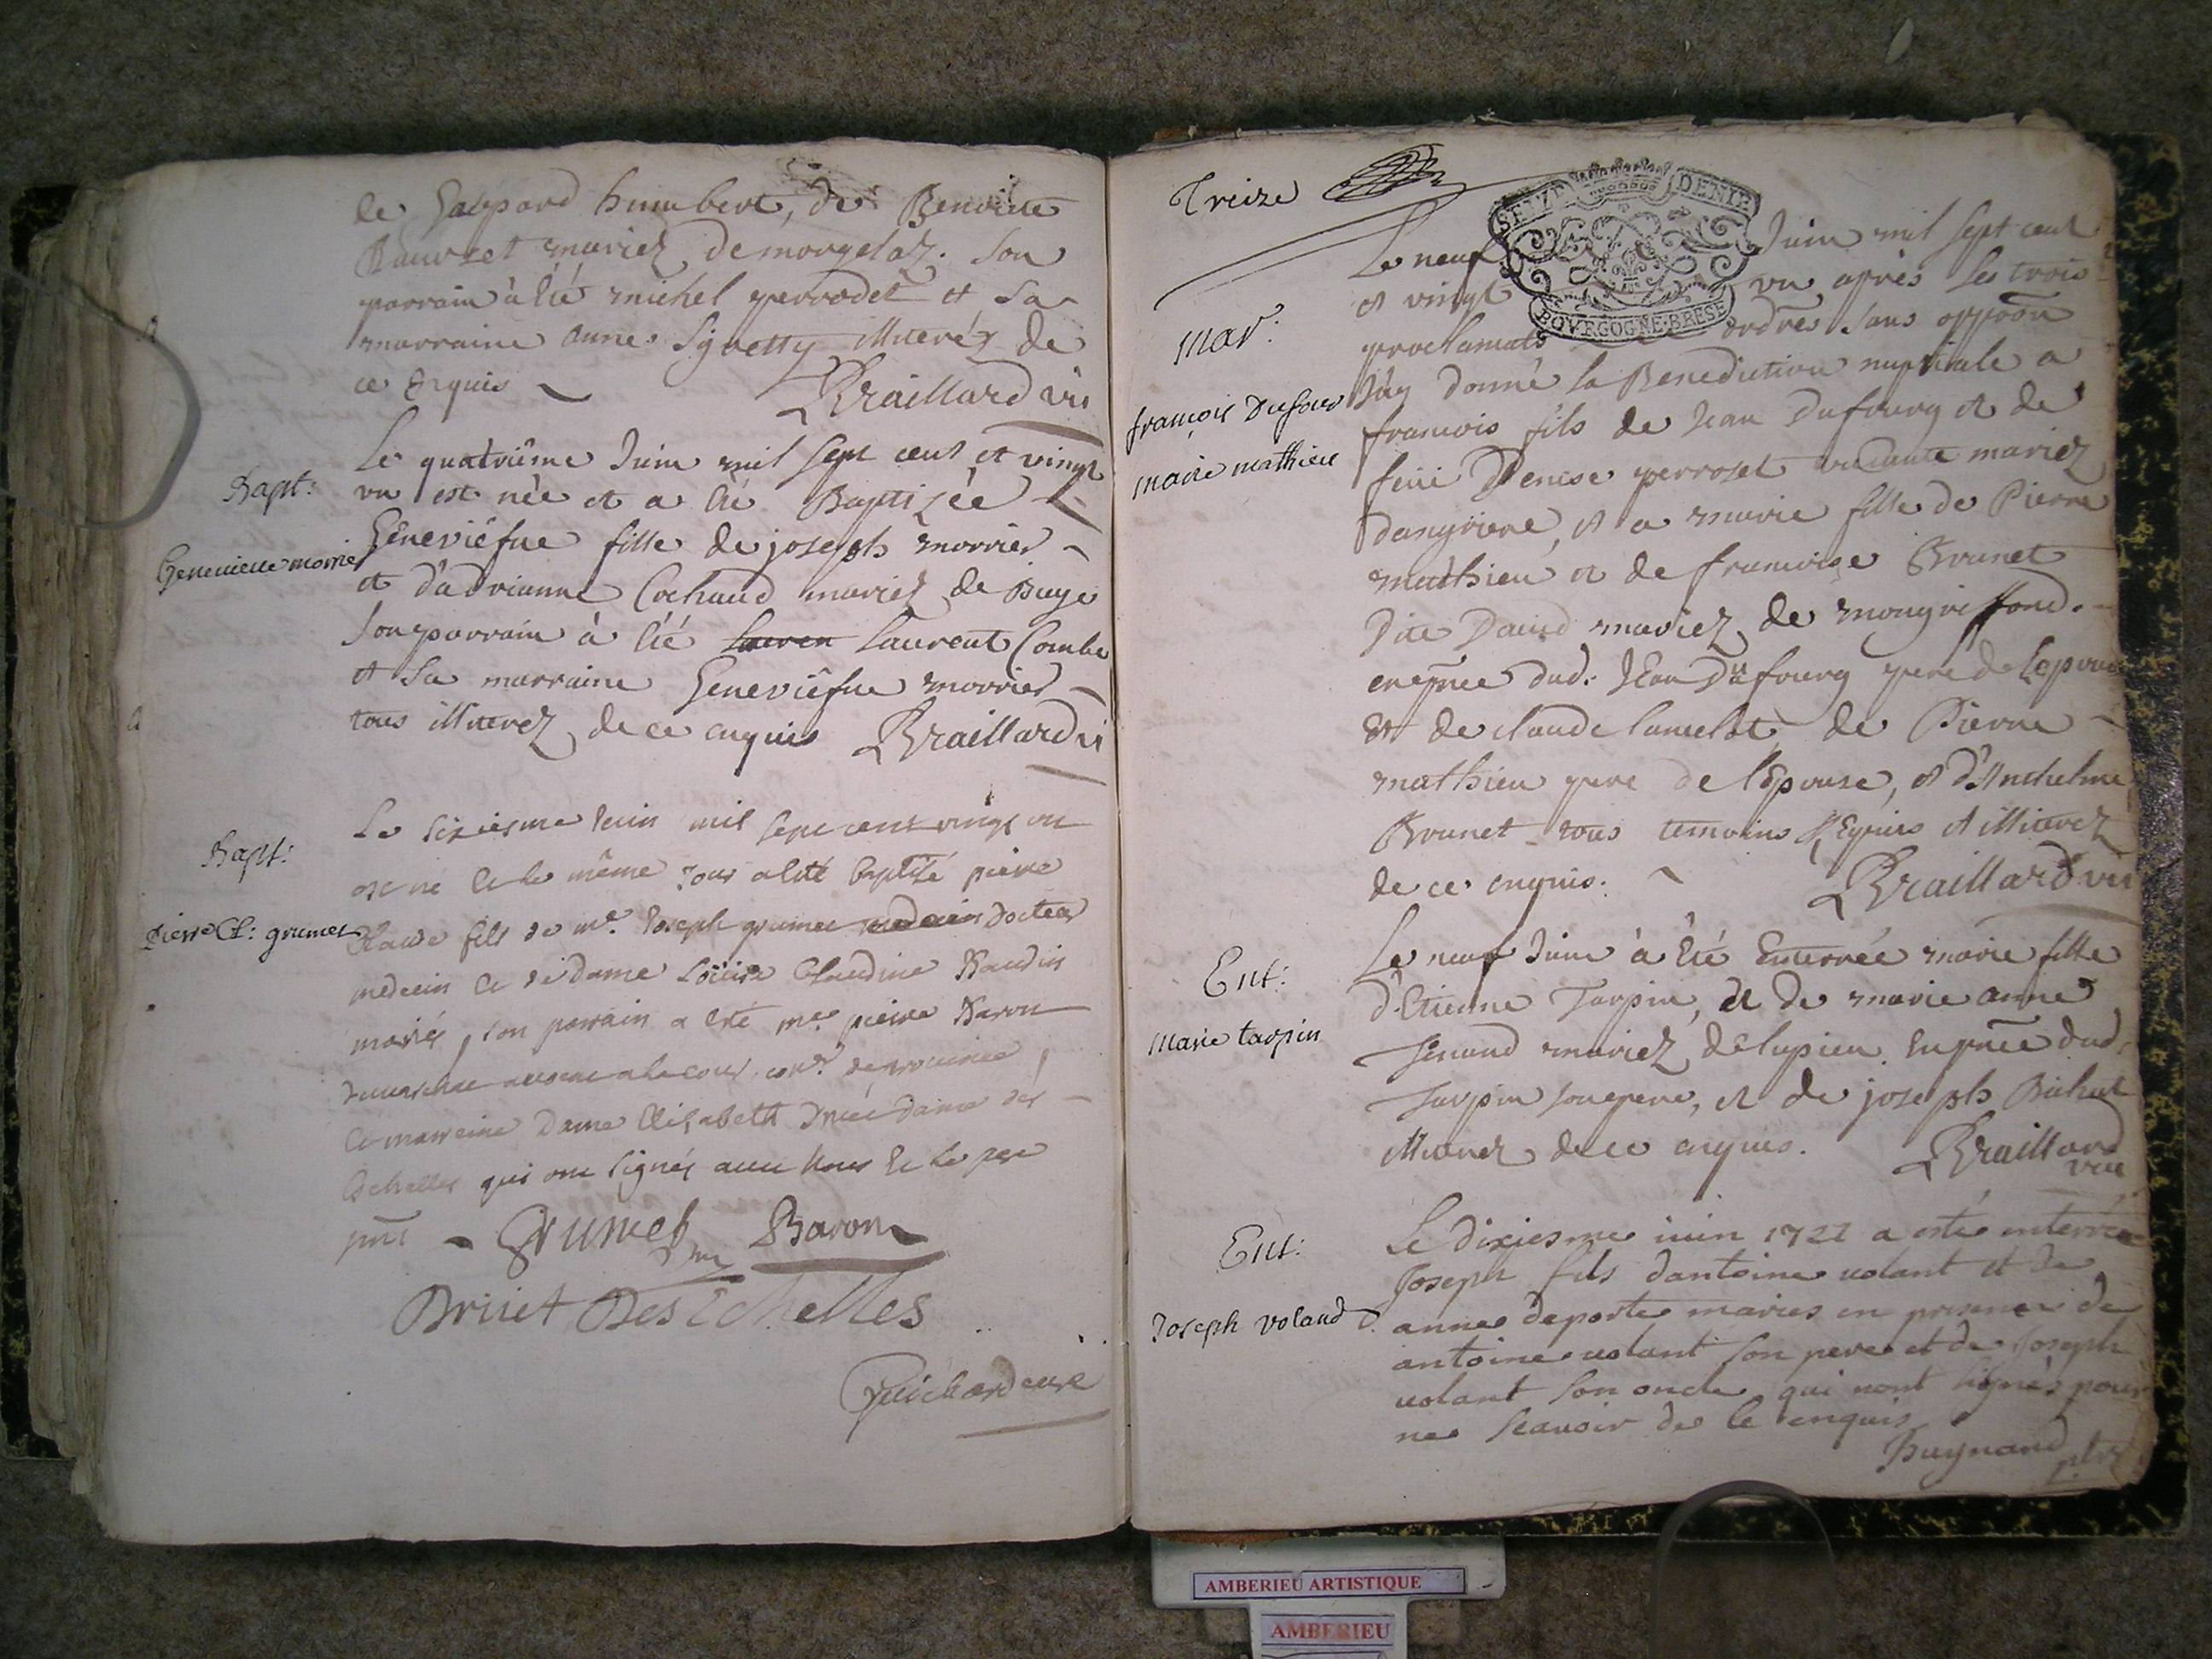 de Gaspard humbert, de Benoite
Rauvset mariez de morgelaz. son
parrain à été michel perrodet et sa
marraine anne Signetty illiterés de
ce Enquis Braillard vic
Bapt:
Genevieve morrier
Le quatrième Juin mil sept cent et vingt
un est née et a été Baptizée
Geneviéfue fille de joseph morrier
et d'adrianne Cochaud mariez de Buge
son parrain à été Lauren Laurent Combe
et sa marraine Geneviéfue morrier
tous illiterez de ce enquis Braillard vi
Bapt:
Pierre Cl: grumet
Le sixiesme Juin mil sept cent vingt un
est né et le même jour a esté baptisé pierre
Claude fils de mr. Joseph grumet medecin docteur
medecin et de dame Loüise Claudine Baudin
mariés, son parrain a esté mre pierre Baron
a la cour
et marreine dame Elisabeth Druet dame des
Echelles qui ont signés avec nous et le pere
pnt Grumet Dm Baron
Druet Des Echelles
Guichard curé
Treize
SEIZE DENIE
BOVRGOGNE·BRESE
mar:
françois Dufour
marie mathieu
Le neuf Juin mil sept cent
et vingt un après les trois
proclamat ordres sans oppoon
J'ay donné la Benediction nuptiale a
francois fils de Jean Dufourg et de
feüe Denise perroset mariez
dangriere, et a marie fille de Pierre
mathieu et de francoise Brunet
Dite David mariez de mongriffond.
enpnce dud. Jean Dufourg pere de lepoux
et de claude lancelot de Pierre
mathieu pere de l'Epouse, et d'Anthelme
Brunet tous temoins Requis et illiterez
de ce enquis. Braillard vic
Ent:
Marie tarpin
Le neuf Juin à été Enterrée marie fille
d'Etienne Tarpin, et de marie anne
Jenaud mariez de lupieu En pnce dud.
Tarpin son pere, et de joseph Bichat
illiterez de ce enquis. Braillard
vic
Ent:
Joseph voland
Le dixiesme iuin 1721 a esté enterré
Joseph fils dantoine uolant et de
anne deporte maries en presence de
antoine uolant son pere et de Joseph
uolant son oncle qui nont signés pour
ne scauoir de le enquis
Buynand ptre
AMBERIEU ARTISTIQUE
AMBERIEU